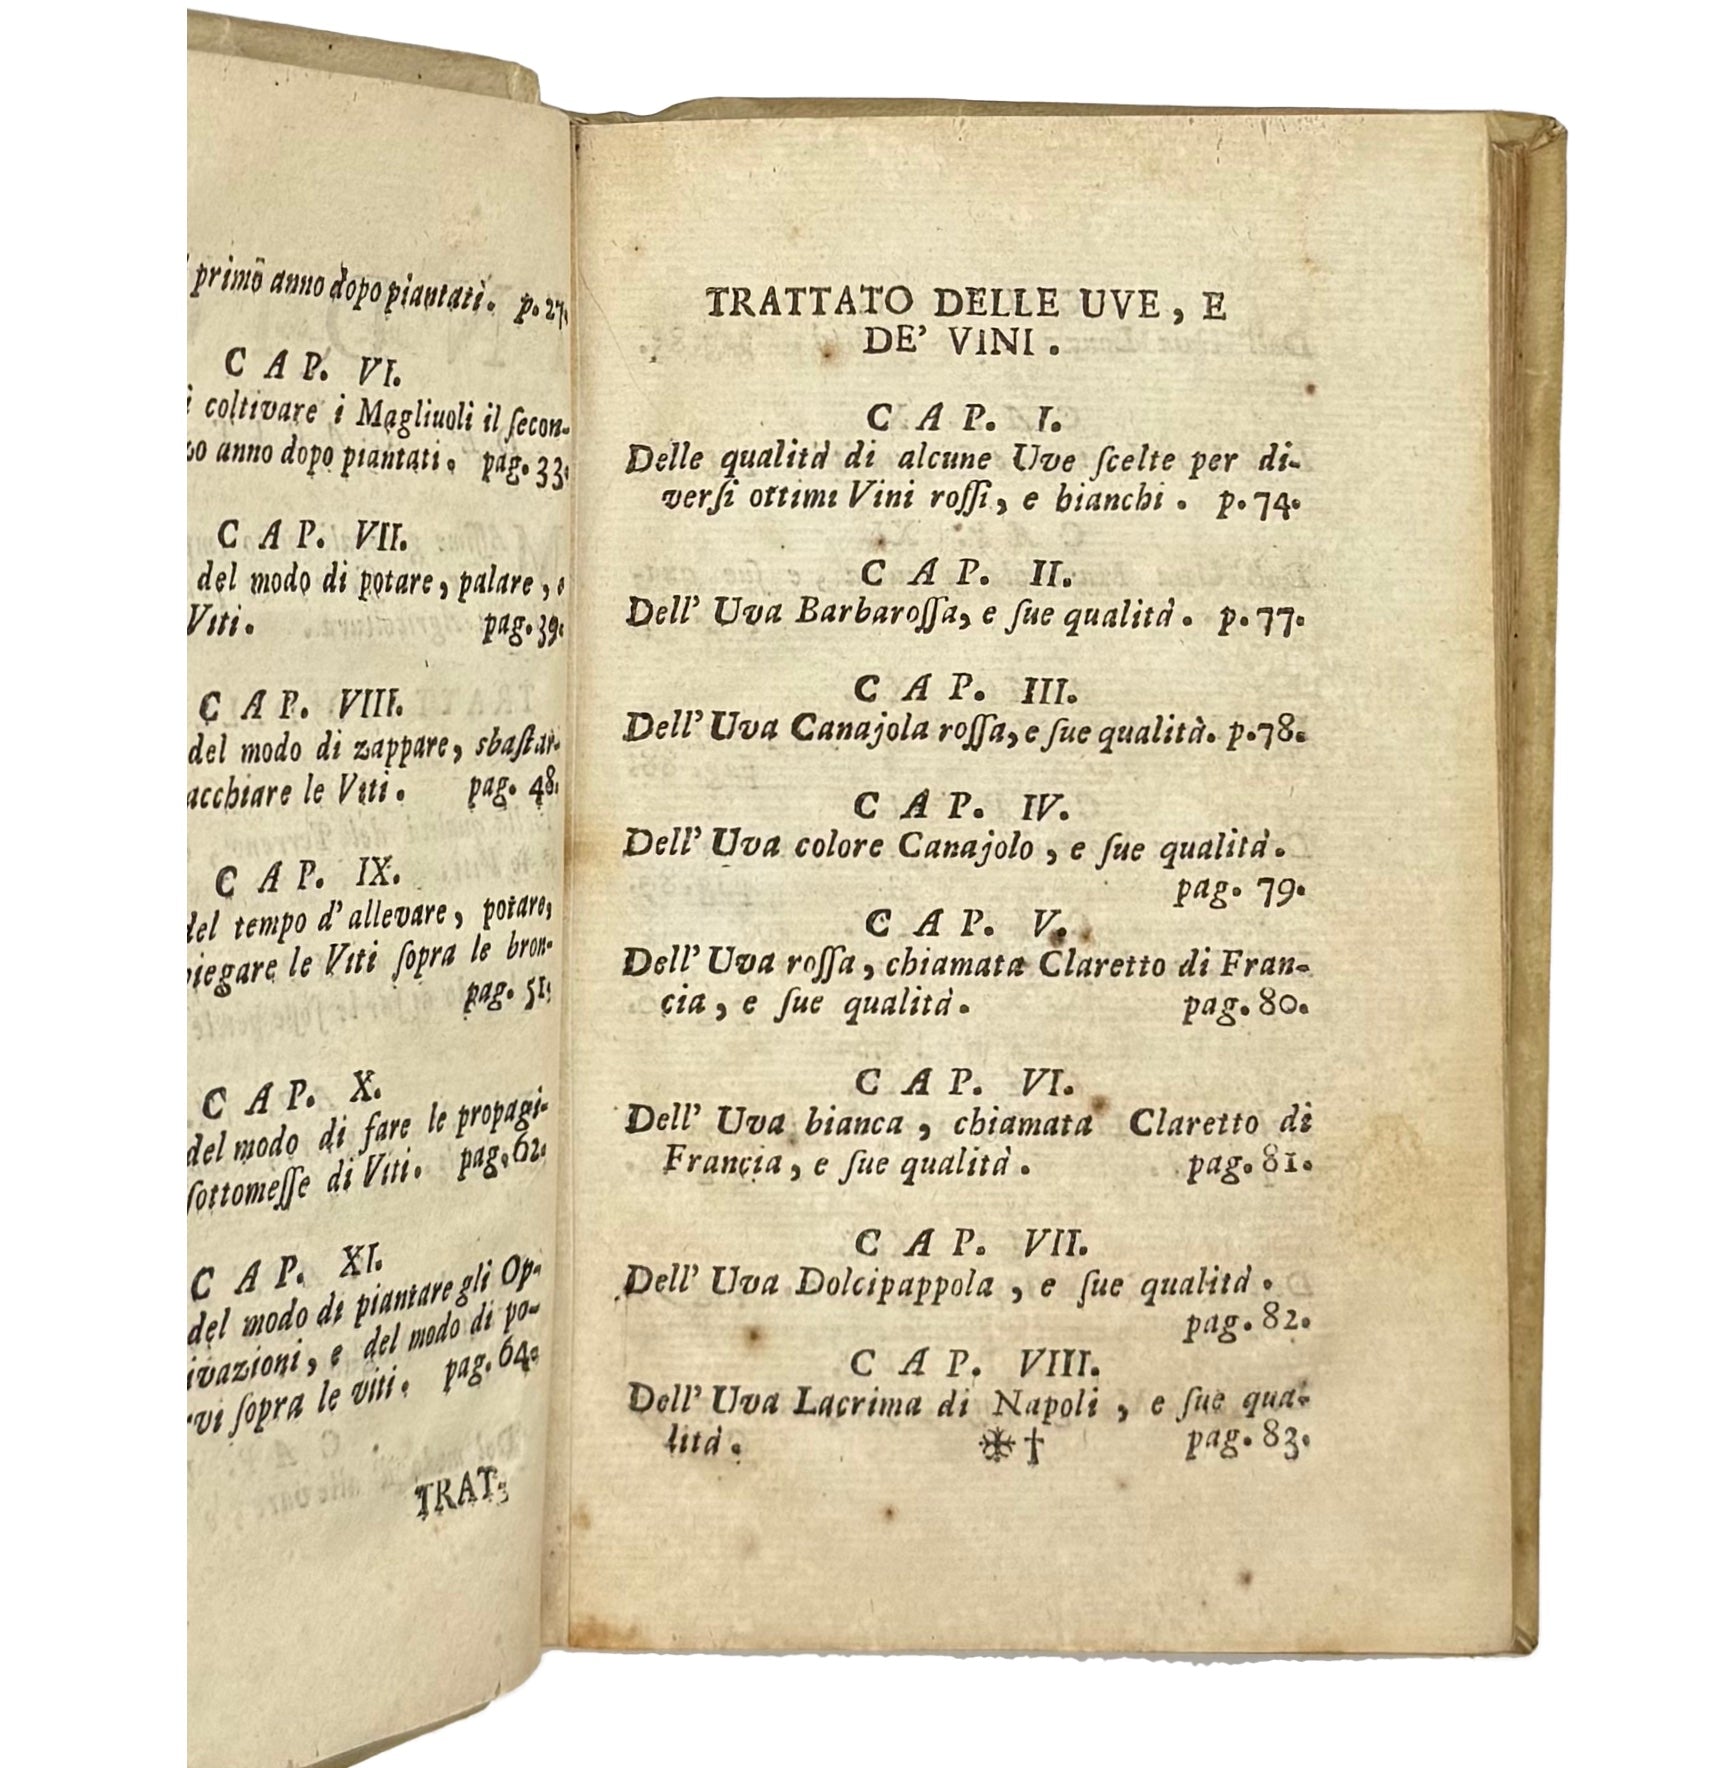 primo anno dopo piantati. p. 27.
C A P. VI.
coltivare i Magliuoli il ſecon-
zo anno dopo piantati. pag. 33.
C A P. VII.
del modo di potare, palare, e
Viti. pag. 39.
C A P. VIII.
del modo di zappare, sbaſtar-
acchiare le Viti. pag. 48.
C A P. IX.
del tempo d' allevare, potare,
piegare le Viti ſopra le bron-
pag. 51.
C A P. X.
del modo di fare le propagi-
ſottomeſſe di Viti. pag. 62.
C A P. XI.
del modo di piantare gli Op-
ivazioni, e del modo di po-
rvi ſopra le viti. pag. 64.
TRAT-
TRATTATO DELLE UVE, E
DE' VINI.
C A P. I.
Delle qualità di alcune Uve ſcelte per di-
verſi ottimi Vini roſſi, e bianchi. p. 74.
C A P. II.
Dell' Uva Barbaroſſa, e ſue qualità. p. 77.
C A P. III.
Dell' Uva Canajola roſſa, e ſue qualità. p. 78.
C A P. IV.
Dell' Uva colore Canajolo, e ſue qualità.
pag. 79.
C A P. V.
Dell' Uva roſſa, chiamata Claretto di Fran-
cia, e ſue qualità. pag. 80.
C A P. VI.
Dell' Uva bianca, chiamata Claretto di
Francia, e ſue qualità. pag. 81.
C A P. VII.
Dell' Uva Dolcipappola, e ſue qualità.
pag. 82.
C A P. VIII.
Dell' Uva Lacrima di Napoli, e ſue qua-
lità. ✠ † pag. 83.